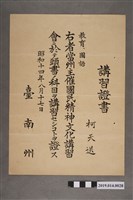 講習證書
柯天送
教育國語
右者當州主催國民精神文化講習
會ニ於テ頭書ノ科目ヲ講習セシコトヲ證ス
昭和十四年八月十七日
臺南州